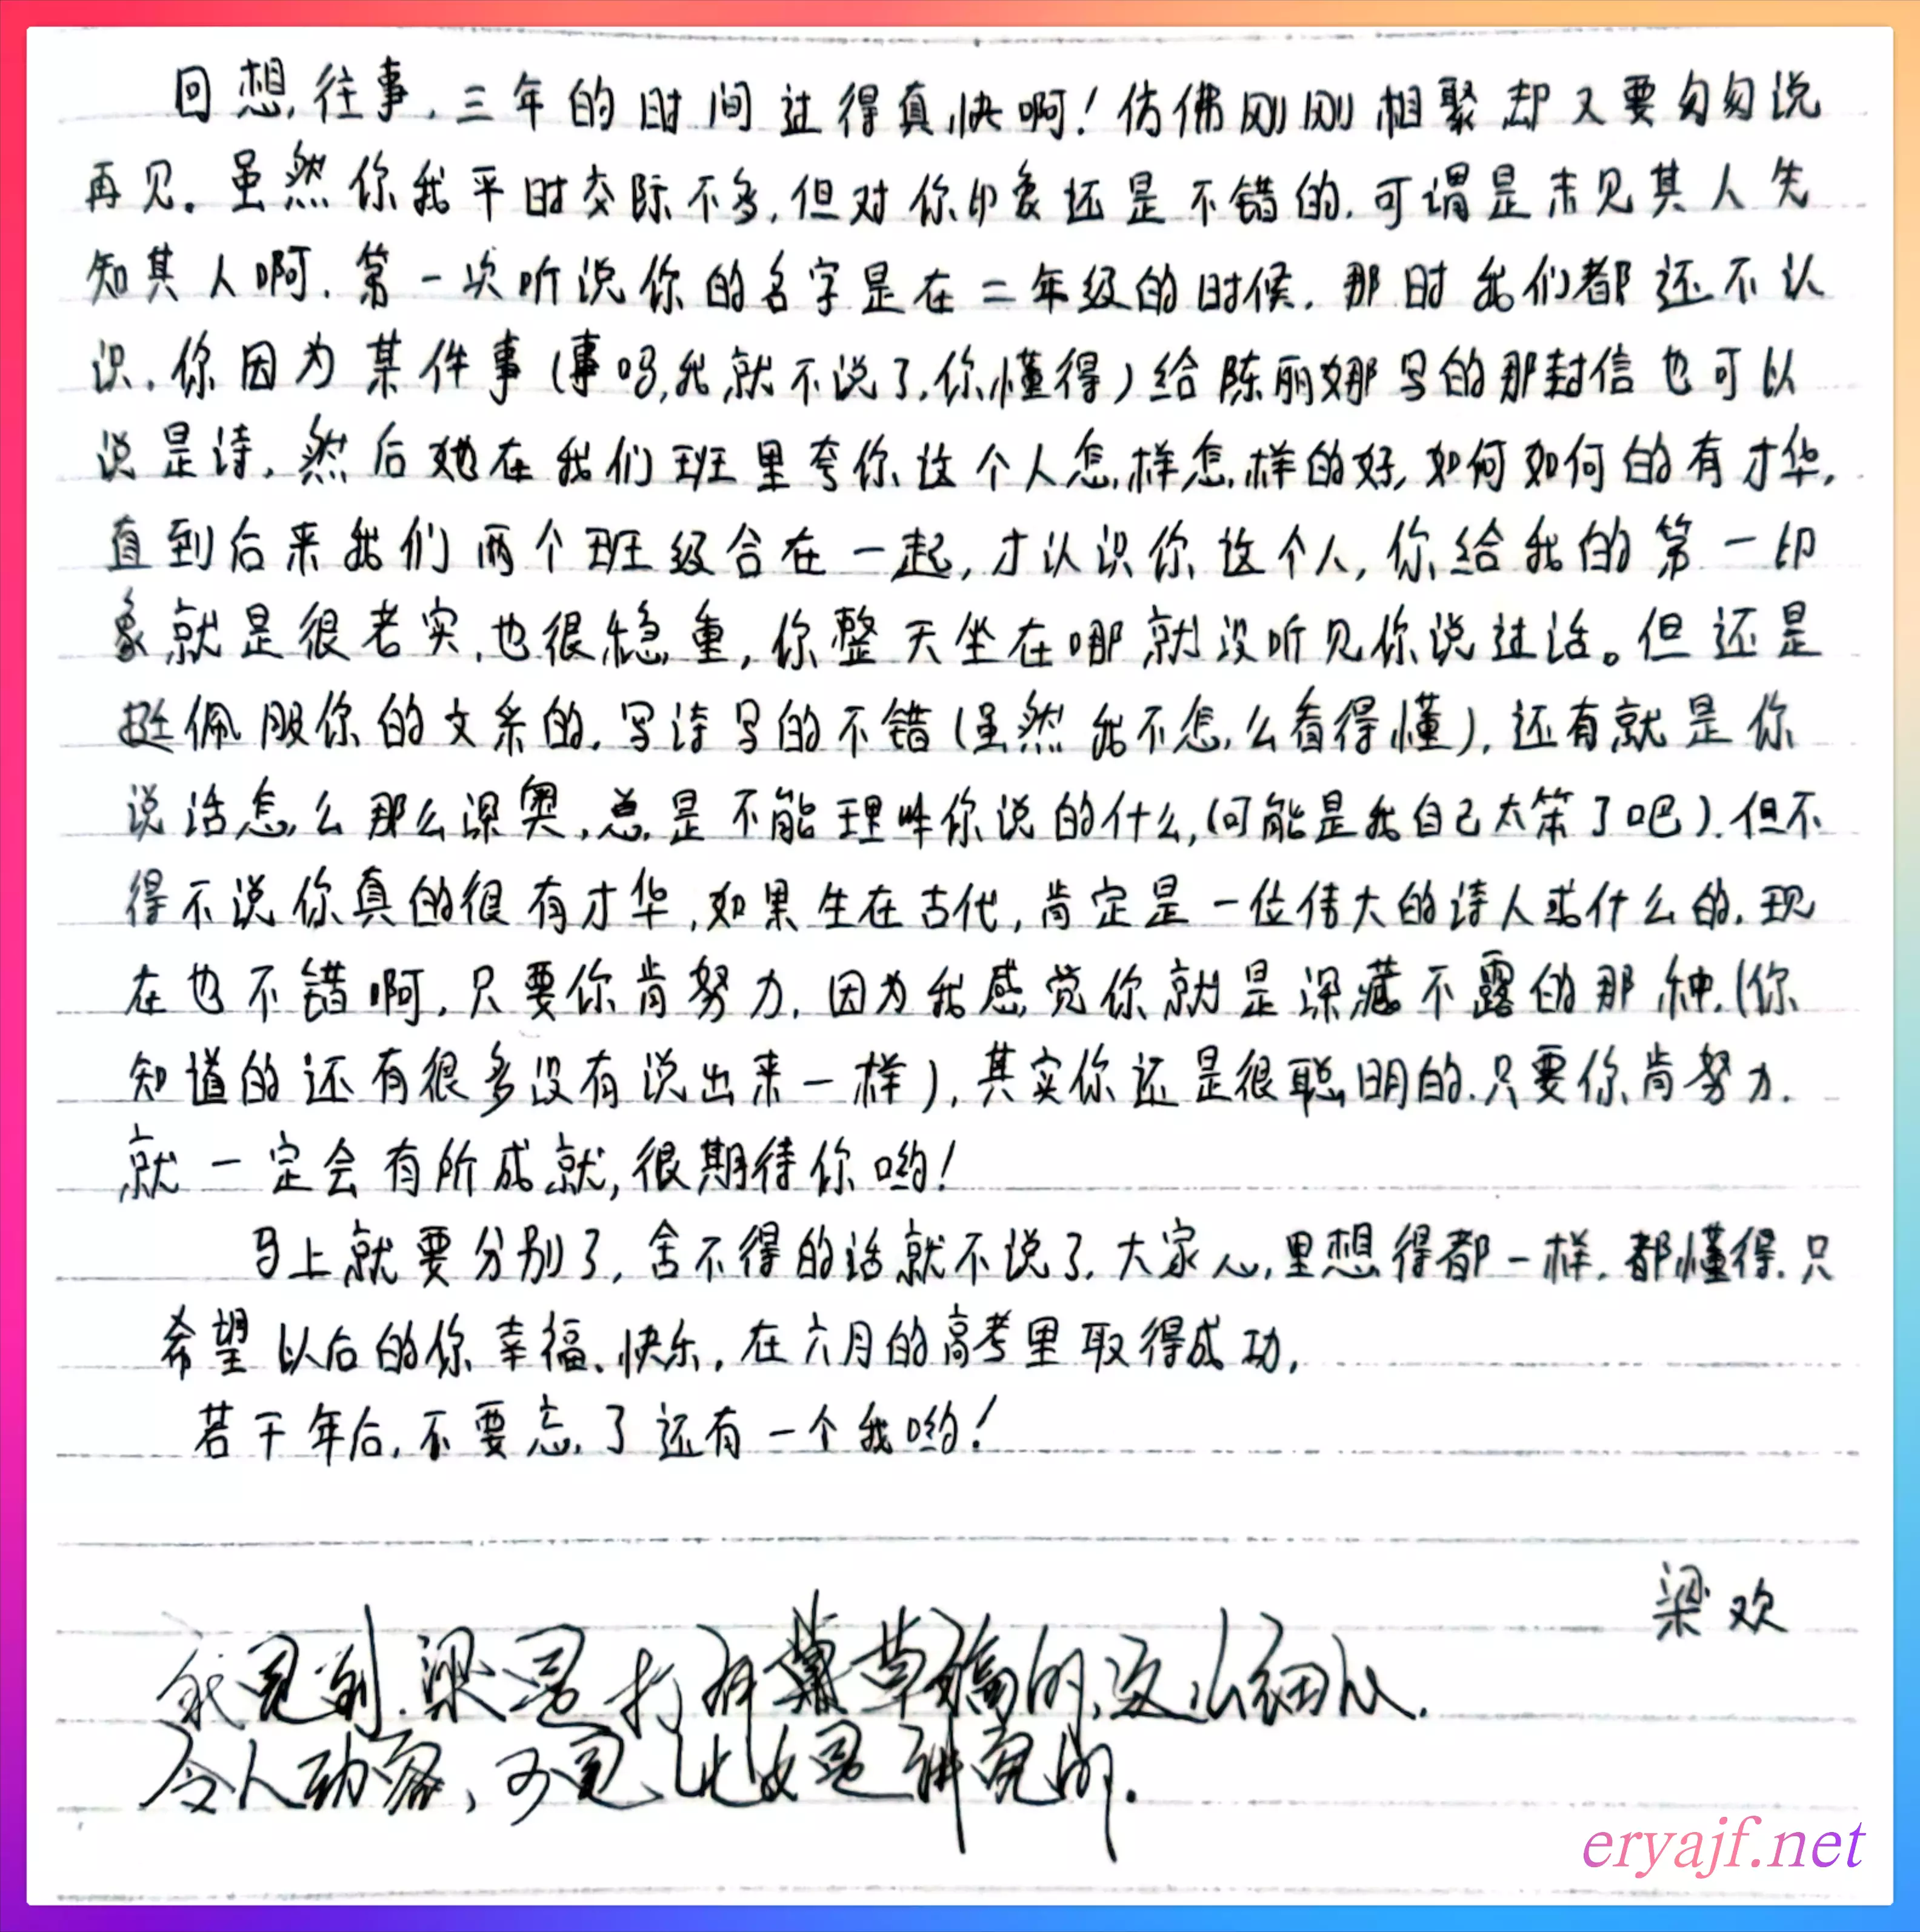 回想,往事,三年的时间过得真快啊!仿佛刚刚相聚却又要匆匆说
再见。虽然你我平时交际不多,但对你印象还是不错的,可谓是未见其人先
知其人啊.第一次听说你的名字是在二年级的时候.那时我们都还不认
识.你因为某件事(事吗,我就不说了,你懂得)给陈丽娜写的那封信也可以
说是诗,然后她在我们班里夸你这个人怎样怎样的好,如何如何的有才华,
直到后来我们两个班级合在一起,才认识你这个人,你给我的第一印
象就是很老实,也很稳重,你整天坐在哪就没听见你说过话。但还是
挺佩服你的文采的,写诗写的不错(虽然我不怎么看得懂),还有就是你
说话怎么那么深奥,总是不能理解你说的什么,(可能是我自己太笨了吧).但不
得不说你真的很有才华,如果生在古代,肯定是一位伟大的诗人或什么的,现
在也不错啊,只要你肯努力,因为我感觉你就是深藏不露的那种,(你
知道的还有很多没有说出来一样),其实你还是很聪明的.只要你肯努力.
就一定会有所成就,很期待你哟!
马上就要分别了,舍不得的话就不说了,大家心里想得都一样,都懂得.只
希望以后的你幸福、快乐,在六月的高考里取得成功,
若干年后,不要忘了还有一个我哟!
梁欢
我见到梁是打了草稿的,这么细心.
令人动容,可见此女是讲究的.
eryajf.net